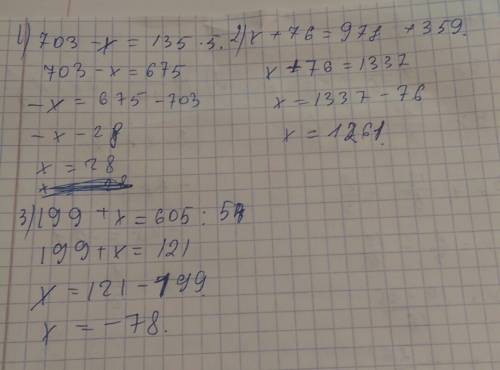 1) 703 - x = 135 · 5.
703 - x = 675
- x = 675 - 703
- x - 28
x = 28
2) x + 76 = 978 + 359.
x + 76 = 1337
x = 1337 - 76
x = 1261.
3) 199 + x = 605 : 5
199 + x = 121
x = 121 - 199
x = - 78.